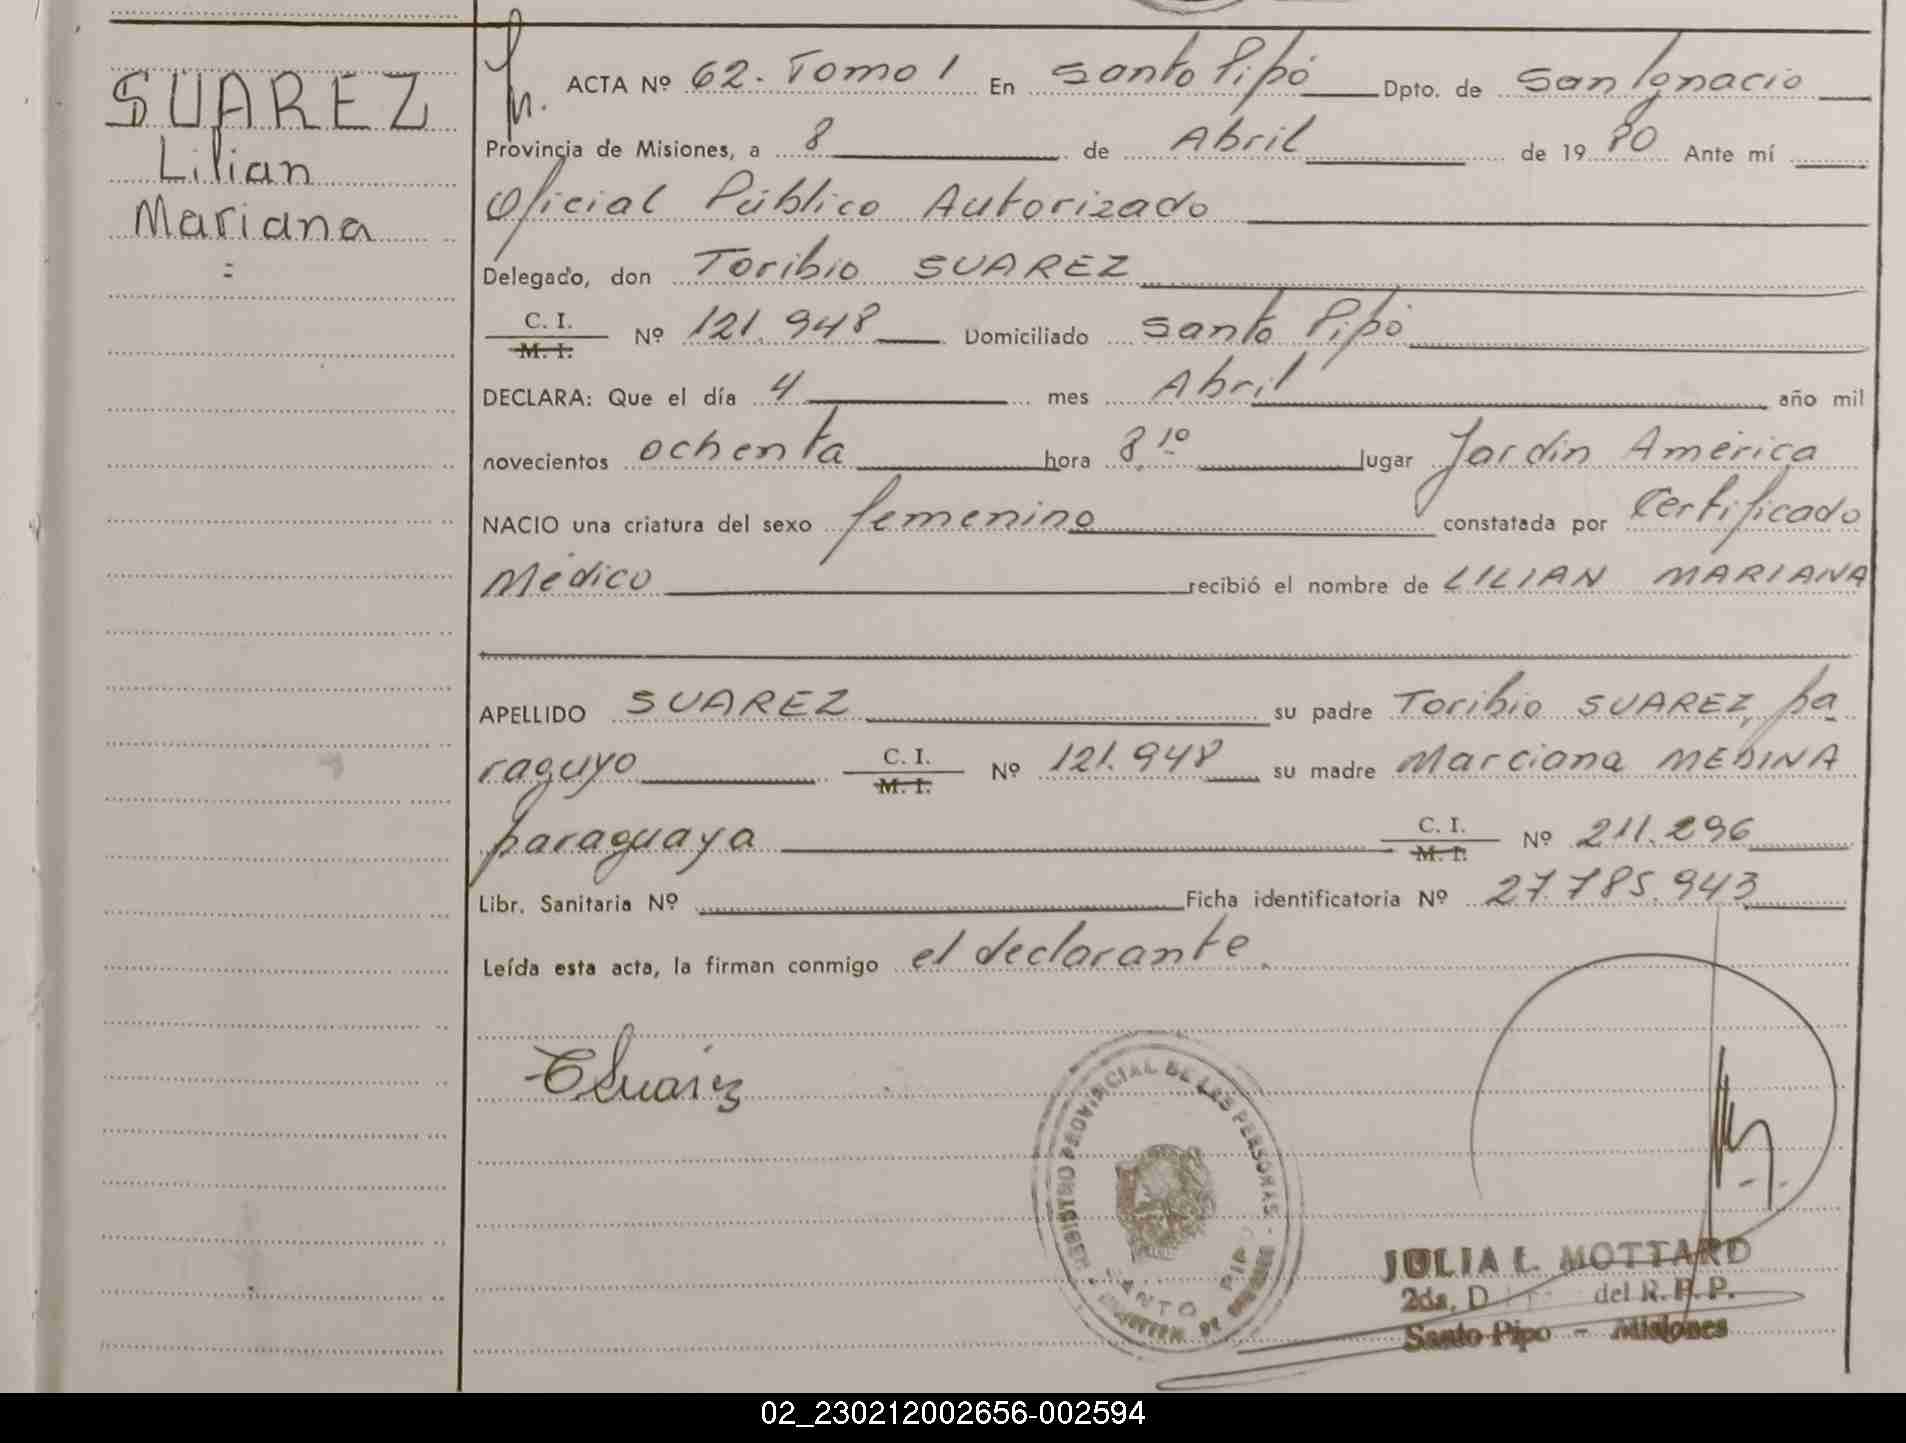 SUAREZ
Lilian
Mariana
=
ACTA Nº 62. Tomo 1 En Santo Pipó Dpto. de San Ignacio
Provincia de Misiones, a 8 de Abril de 1980 Ante mí
Oficial Público Autorizado
Delegado, don Toribio SUAREZ
C. I.
M. I.
Nº 121.948 Domiciliado Santo Pipó
DECLARA: Que el día 4 mes Abril año mil
novecientos ochenta hora 8.10 lugar Jardin América
NACIO una criatura del sexo femenino constatada por Certificado
Médico recibió el nombre de LILIAN MARIANA
APELLIDO SUAREZ su padre Toribio SUAREZ, pa
raguyo C. I. Nº 121.948 su madre Marciana MEDINA
M. I.
paraguaya C. I. Nº 211.296
M. I.
Libr. Sanitaria Nº Ficha identificatoria Nº 27.785.943
Leída esta acta, la firman conmigo el declarante.
TSuarez
REGISTRO PROVINCIAL DE LAS PERSONAS
SANTO PIPO
JULIA L. MOTTARD
2da. D del R. P. P.
Santo Pipo - Misiones
02_230212002656-002594